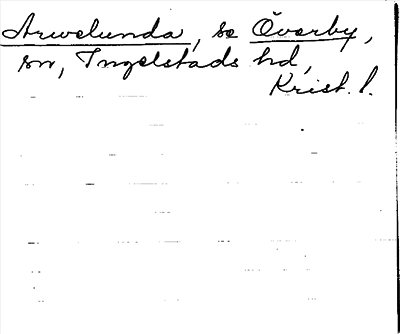 Arvelunda, se Överby,
sn, Ingelstads hd,
Krist. l.